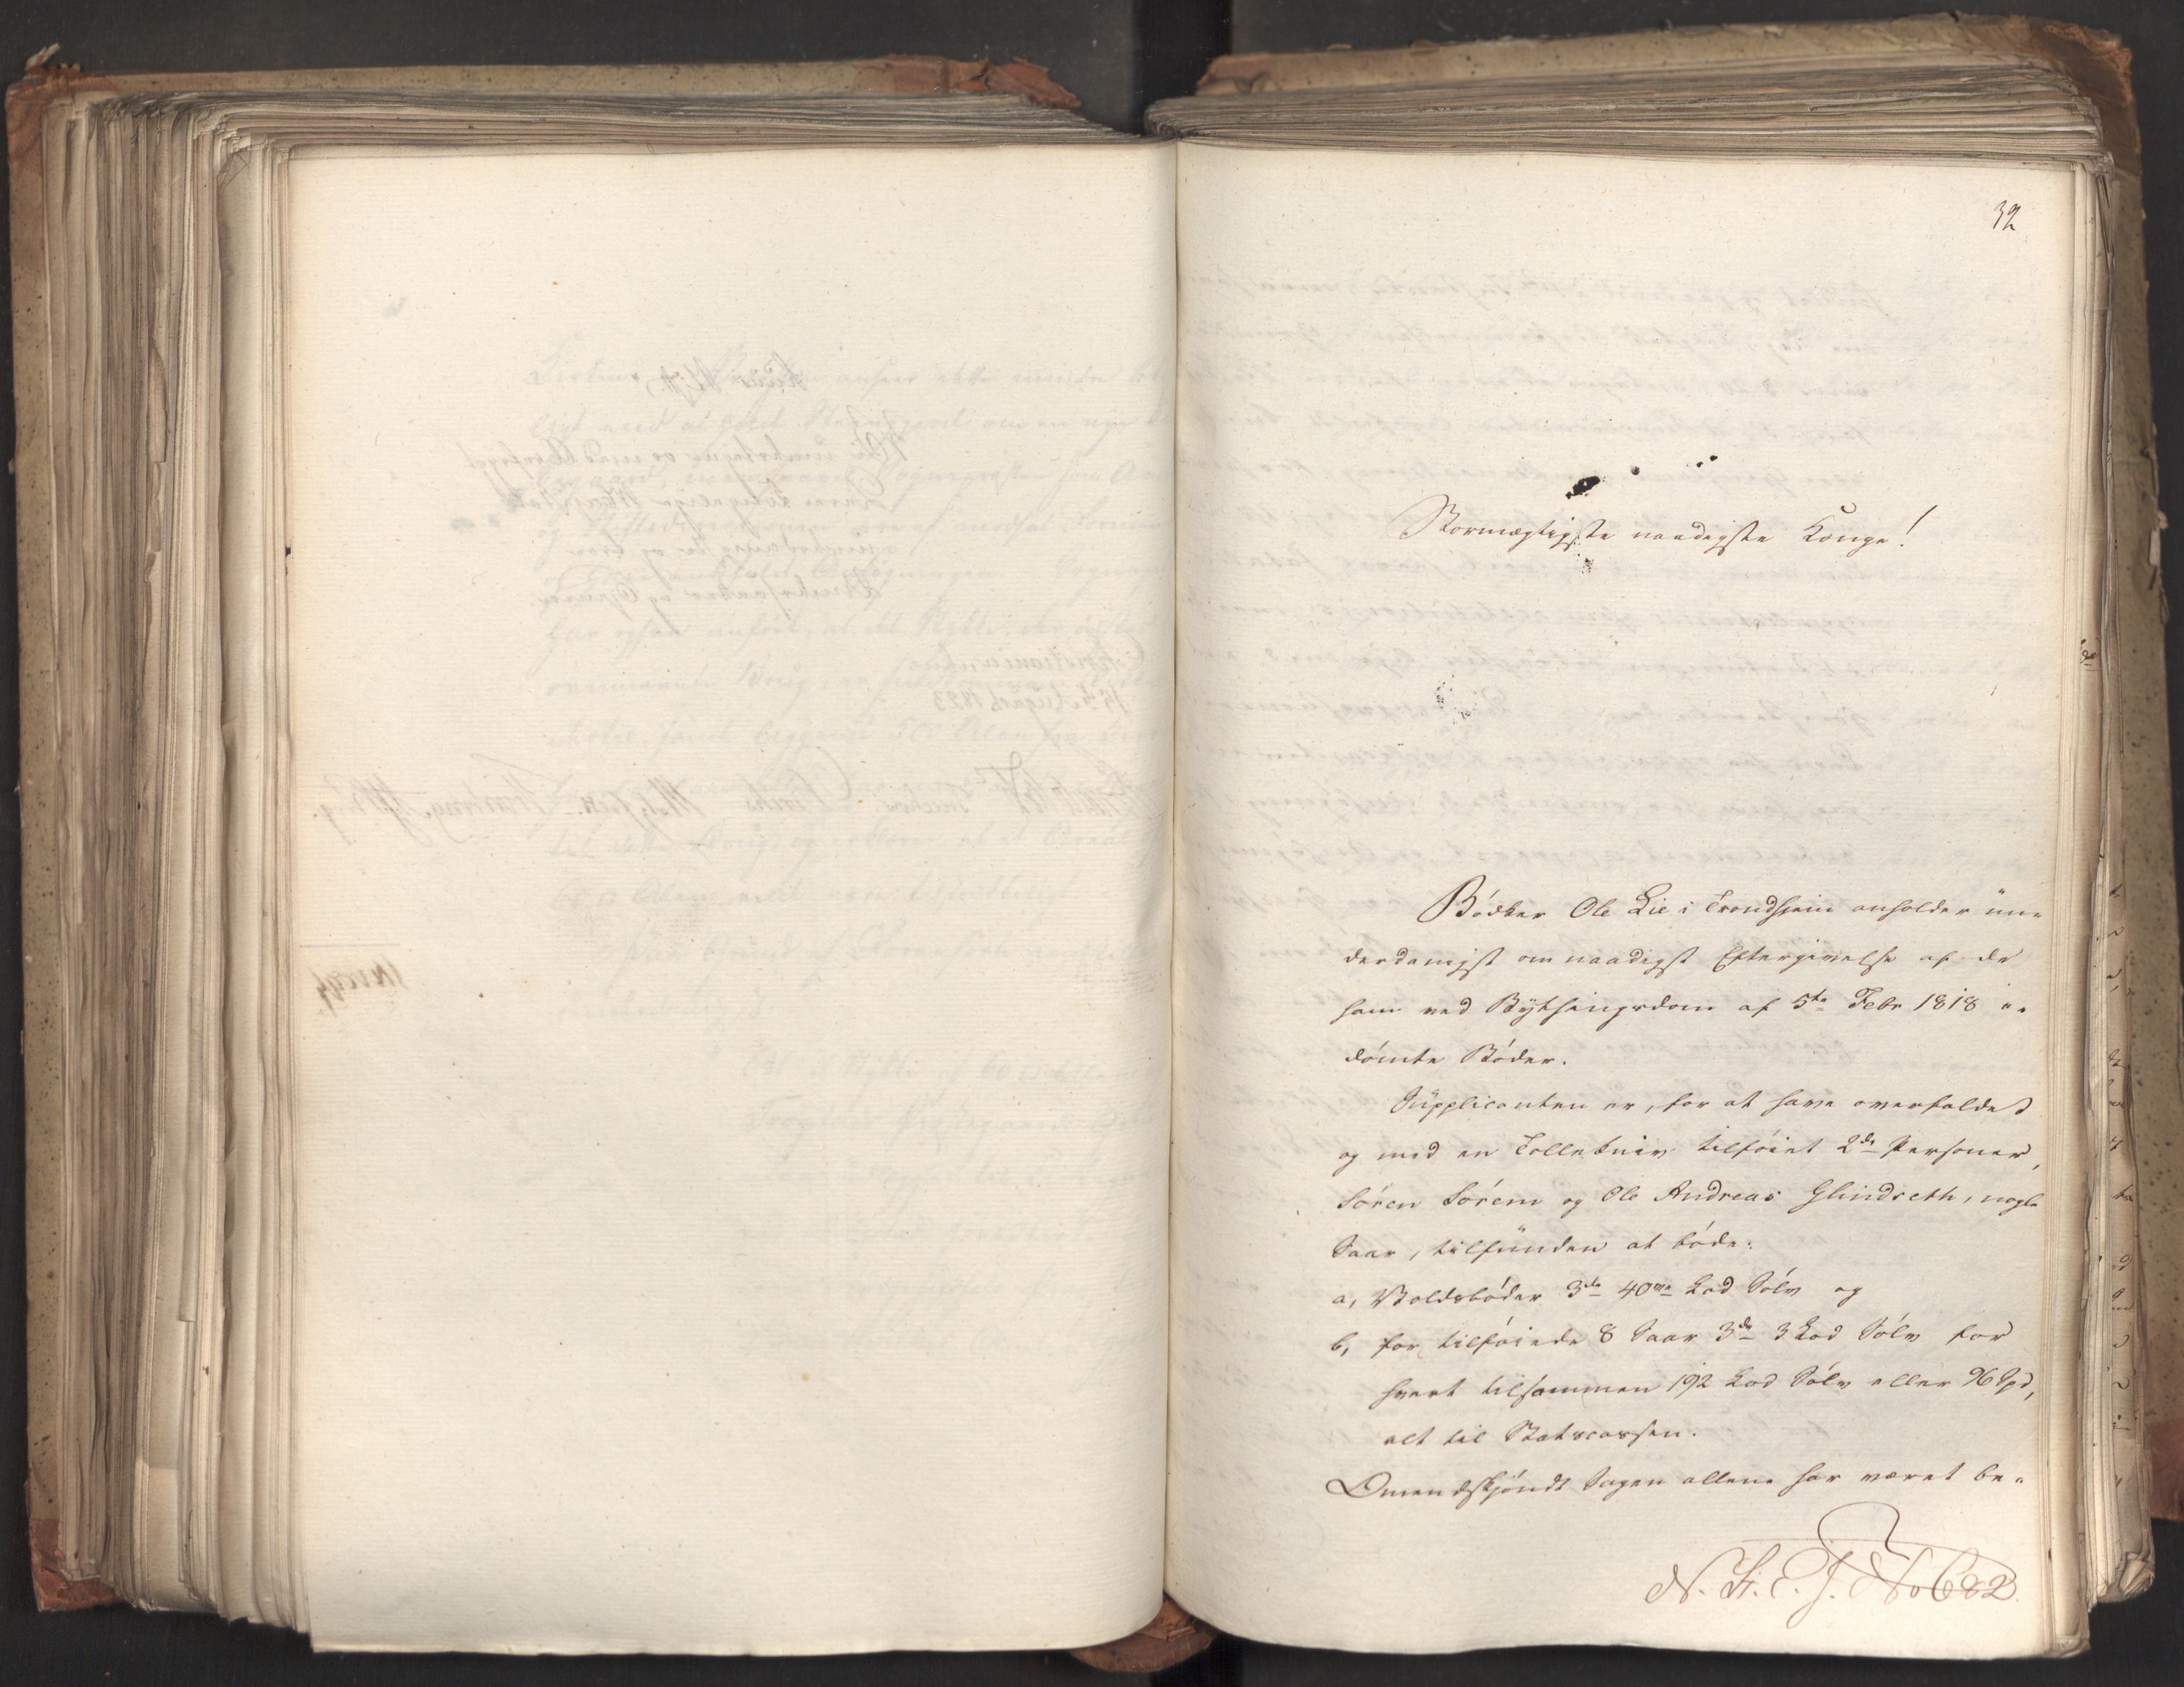 32
Stormægtigste naadigste Konge!
Bödker Ole Lie i Trondhjem anholder un-
derdanigst om naadigst Eftergivelse af de
ham ved Bythingsdom af 5te Febr 1818 i-
dömte Böder.
Supplicanten er, for at have overfaldet
og med en Tollekniv tilföiet 2de Personer,
Sören Sörem og Ole Andreas Glindseth, nogle
Saar, tilfunden at böde:
a, Voldsböder 3de 40me Lod Sölv og
b, for tilföiede 8 Saar 3de 3 Lod Sölv for
hvert tilsammen 192 Lod Sölv eller 96 Spd,
alt til Statscassen.
Omendskjöndt Sagen allene har været be-
N. St. E. J. No 682.